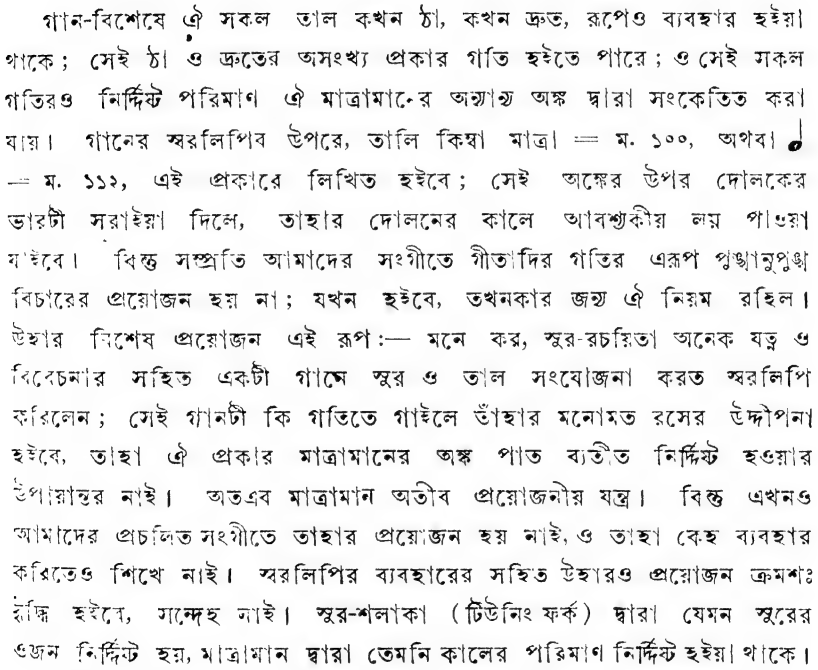 গান-বিশেষে ঐ সকল তাল কখন ঠা, কখন দ্রুত, রূপেও ব্যবহার হইয়া
থাকে ; সেই ঠা ও দ্রুতের অসংখ্য প্রকার গতি হইতে পারে ; ও সেই সকল
গতিরও নির্দ্দিষ্ট পরিমাণ ঐ মাত্রামানের অন্যান্য অঙ্ক দ্বারা সংকেতিত করা
যায়। গানের স্বরলিপির উপরে, তালি কিম্বা মাত্রা = ম. ১০০, অথবা
= ম. ১১২, এই প্রকারে লিখিত হইবে ; সেই অঙ্কের উপর দোলকের
ভারটী সরাইয়া দিলে, তাহার দোলনের কালে আবশ্যকীয় লয় পাওয়া
যাইবে। কিন্তু সম্প্রতি আমাদের সংগীতে গীতাদির গতির এরূপ পুঙ্খানুপুঙ্খ
বিচারের প্রয়োজন হয় না ; যখন হইবে, তখনকার জন্য ঐ নিয়ম রহিল।
উহার বিশেষ প্রয়োজন এই রূপ :— মনে কর, সুর-রচয়িতা অনেক যত্ন ও
বিবেচনার সহিত একটী গানে সুর ও তাল সংযোজনা করত স্বরলিপি
করিলেন ; সেই গানটী কি গতিতে গাইলে তাঁহার মনোমত রসের উদ্দীপনা
হইবে, তাহা ঐ প্রকার মাত্রামানের অঙ্ক পাত ব্যতীত নির্দ্দিষ্ট হওয়ার
উপায়ান্তর নাই। অতএব মাত্রামান অতীব প্রয়োজনীয় যন্ত্র। কিন্তু এখনও
আমাদের প্রচলিত সংগীতে তাহার প্রয়োজন হয় নাই, ও তাহা কেহ ব্যবহার
করিতেও শিখে নাই। স্বরলিপির ব্যবহারের সহিত উহারও প্রয়োজন ক্রমশঃ
বৃদ্ধি হইবে, সন্দেহ নাই। সুর-শলাকা (টিউনিং ফর্ক) দ্বারা যেমন সুরের
ওজন নির্দ্দিষ্ট হয়, মাত্রামান দ্বারা তেমনি কালের পরিমাণ নির্দ্দিষ্ট হইয়া থাকে।